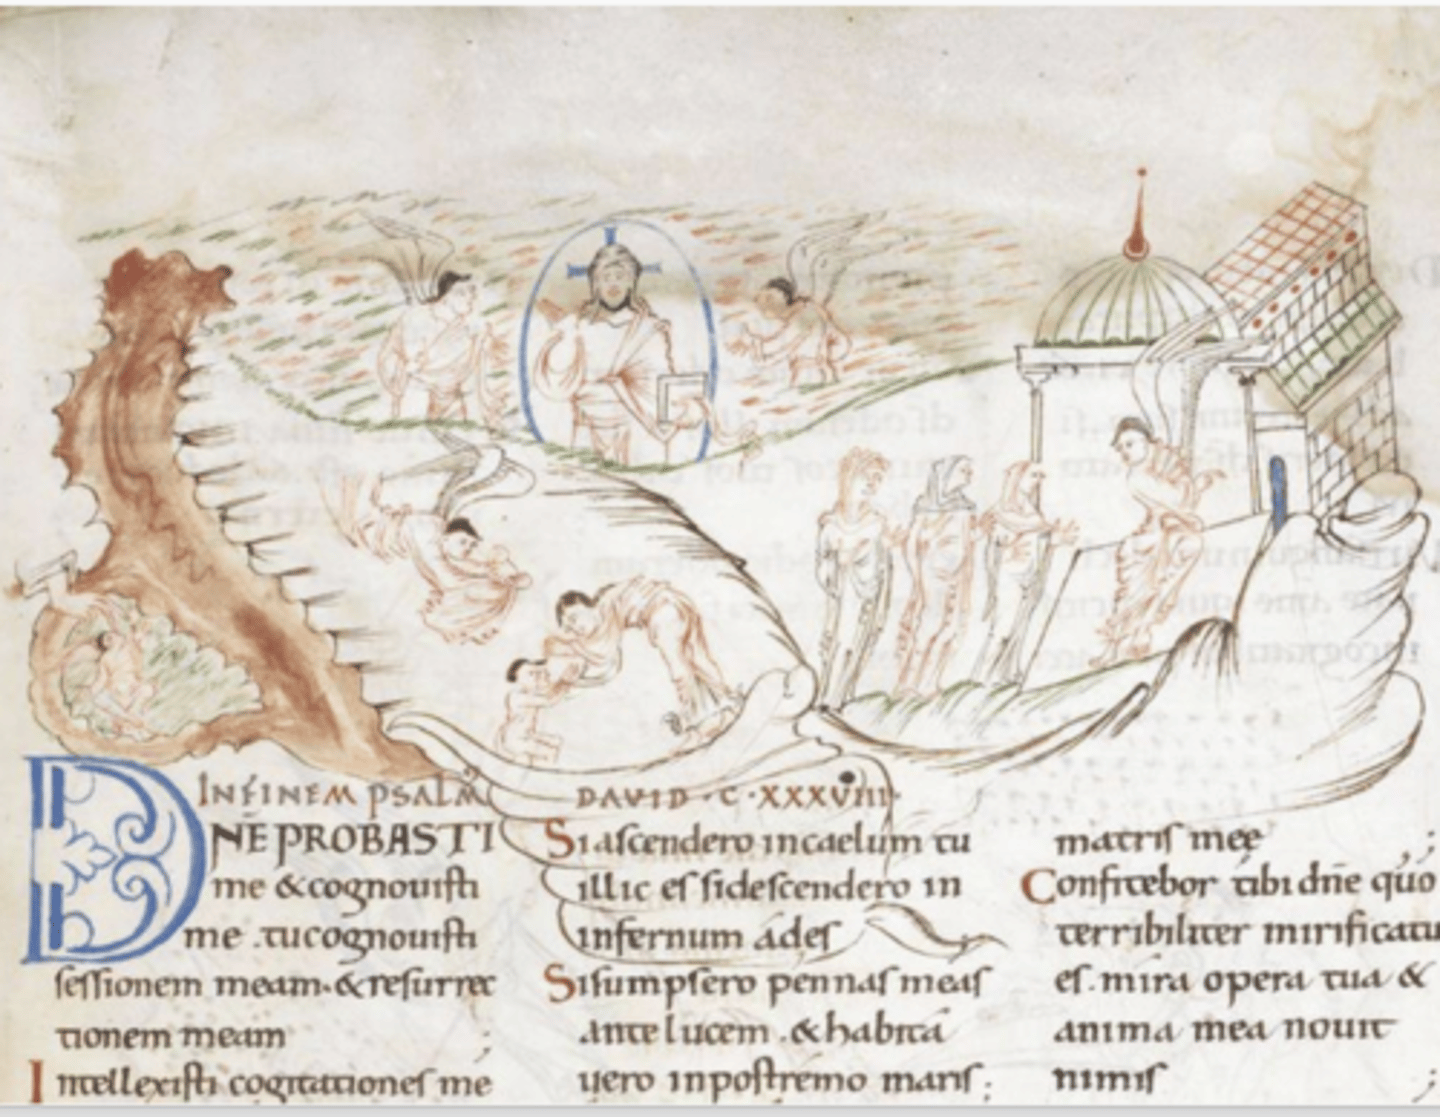 IN FINEM PSALM DAVID · C · XXXVIII ·
DNE PROBASTI
me & cognouisti
me . tu cognouisti
sessionem meam · & resurrec
tionem meam ;
Intellexisti cogitationes me
Si ascendero in caelum tu
illic es si descendero in
infernum ádes
Si sumpsero pennas meas
ante lucem . & habita
uero in postremo maris ;
matris meę ;
Confitebor tibi dne quo
terribiliter mirificatu
es . mira opera tua &
anima mea nouit
nimis ;